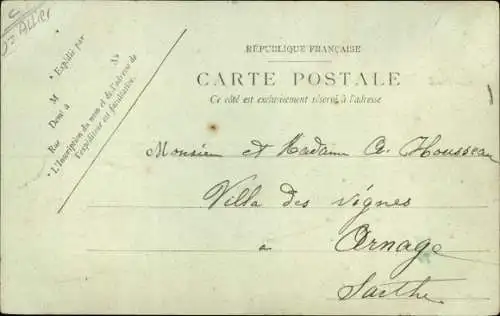 D= Allier
RÉPUBLIQUE FRANÇAISE
CARTE POSTALE
Ce côté est exclusivement réservé à l'adresse
* Expédié par
M
Demt à
Rue No
* L'Inscription du nom et de l'adresse de
l'expéditeur est facultative.
Monsieur et Madame Ch. Housseau
Villa des vignes
à Arnage
Sarthe